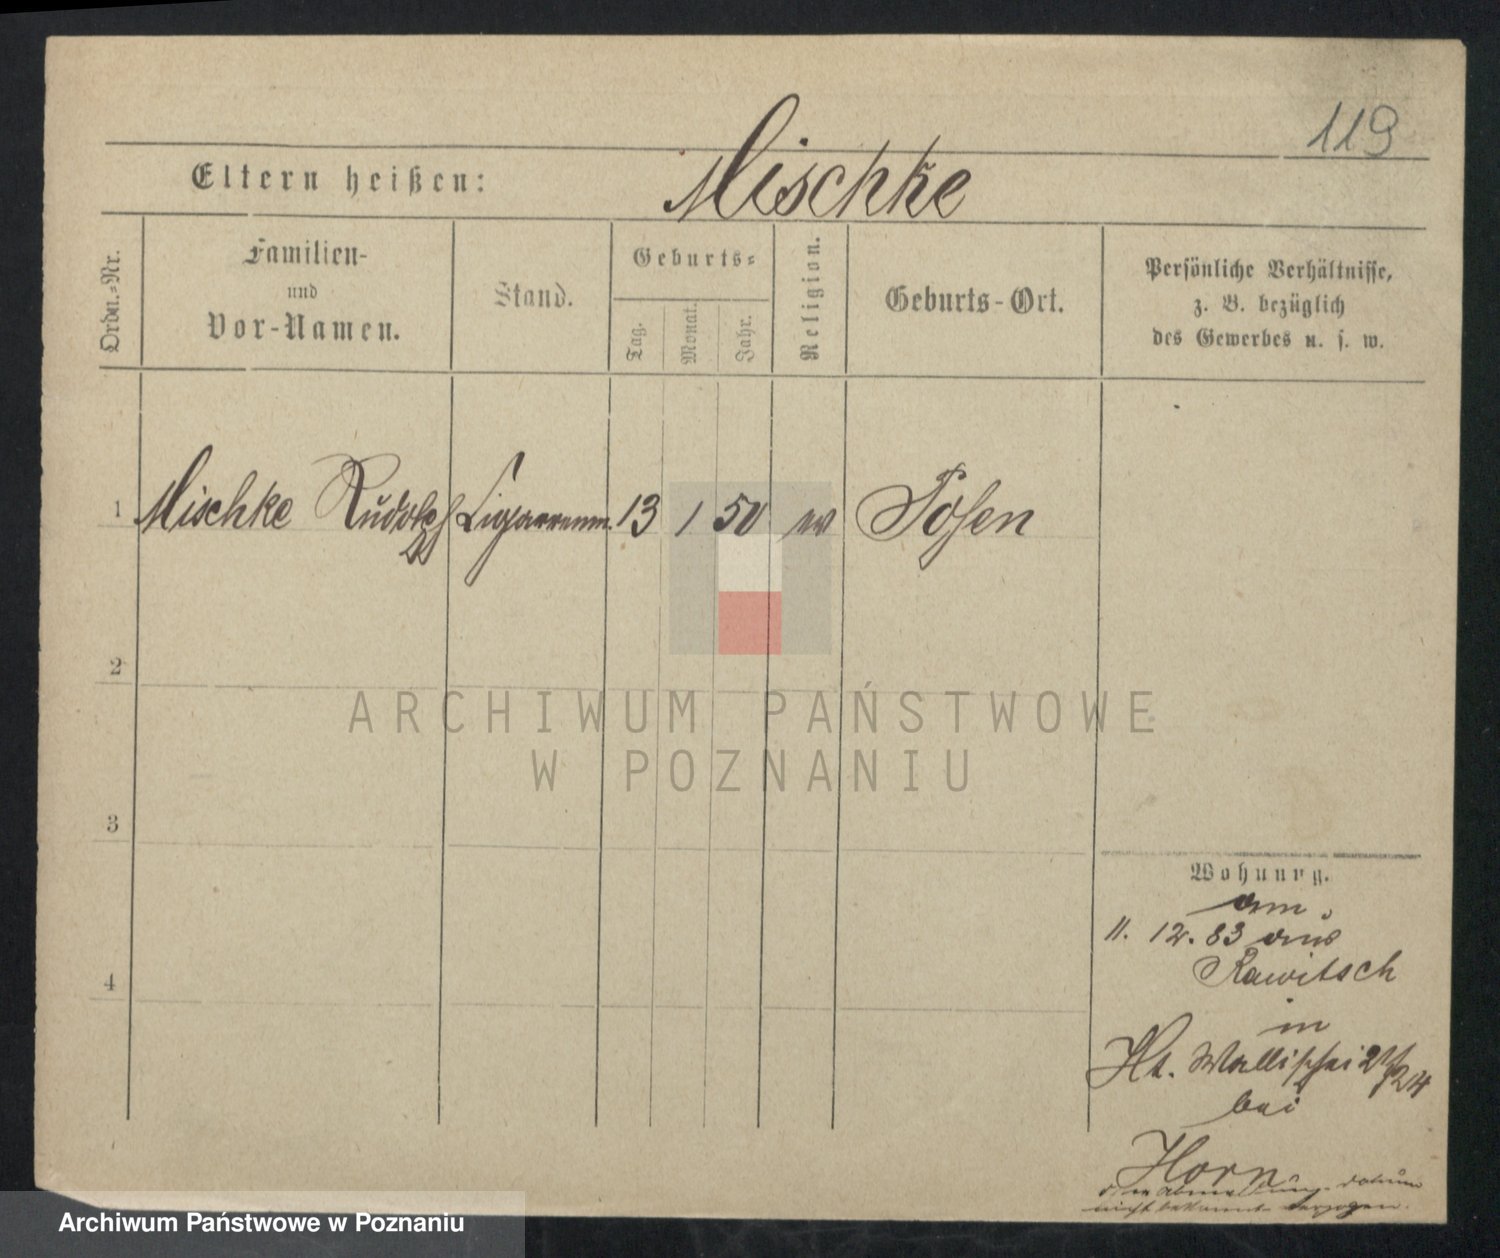 119
Eltern heißen: Mischke
Ordn.-Nr.
Familien-
und
Vor-Namen.
Stand.
Geburts-
Tag.
Monat.
Jahr.
Religion.
Geburts-Ort.
Persönliche Verhältnisse,
z. B. bezüglich
des Gewerbes u. s. w.
1 Mischke Rudolph Cigarrenm. 13 1 50 ev Posen
2
3
4
Wohnung.
am
11. 12. 83 aus
Rawitsch
in
Ht. Wallischei 21/24
bei
Horn
ohne abmeldung. datum
nicht bekannt verzogen.
ARCHIWUM PAŃSTWOWE
W POZNANIU
Archiwum Państwowe w Poznaniu